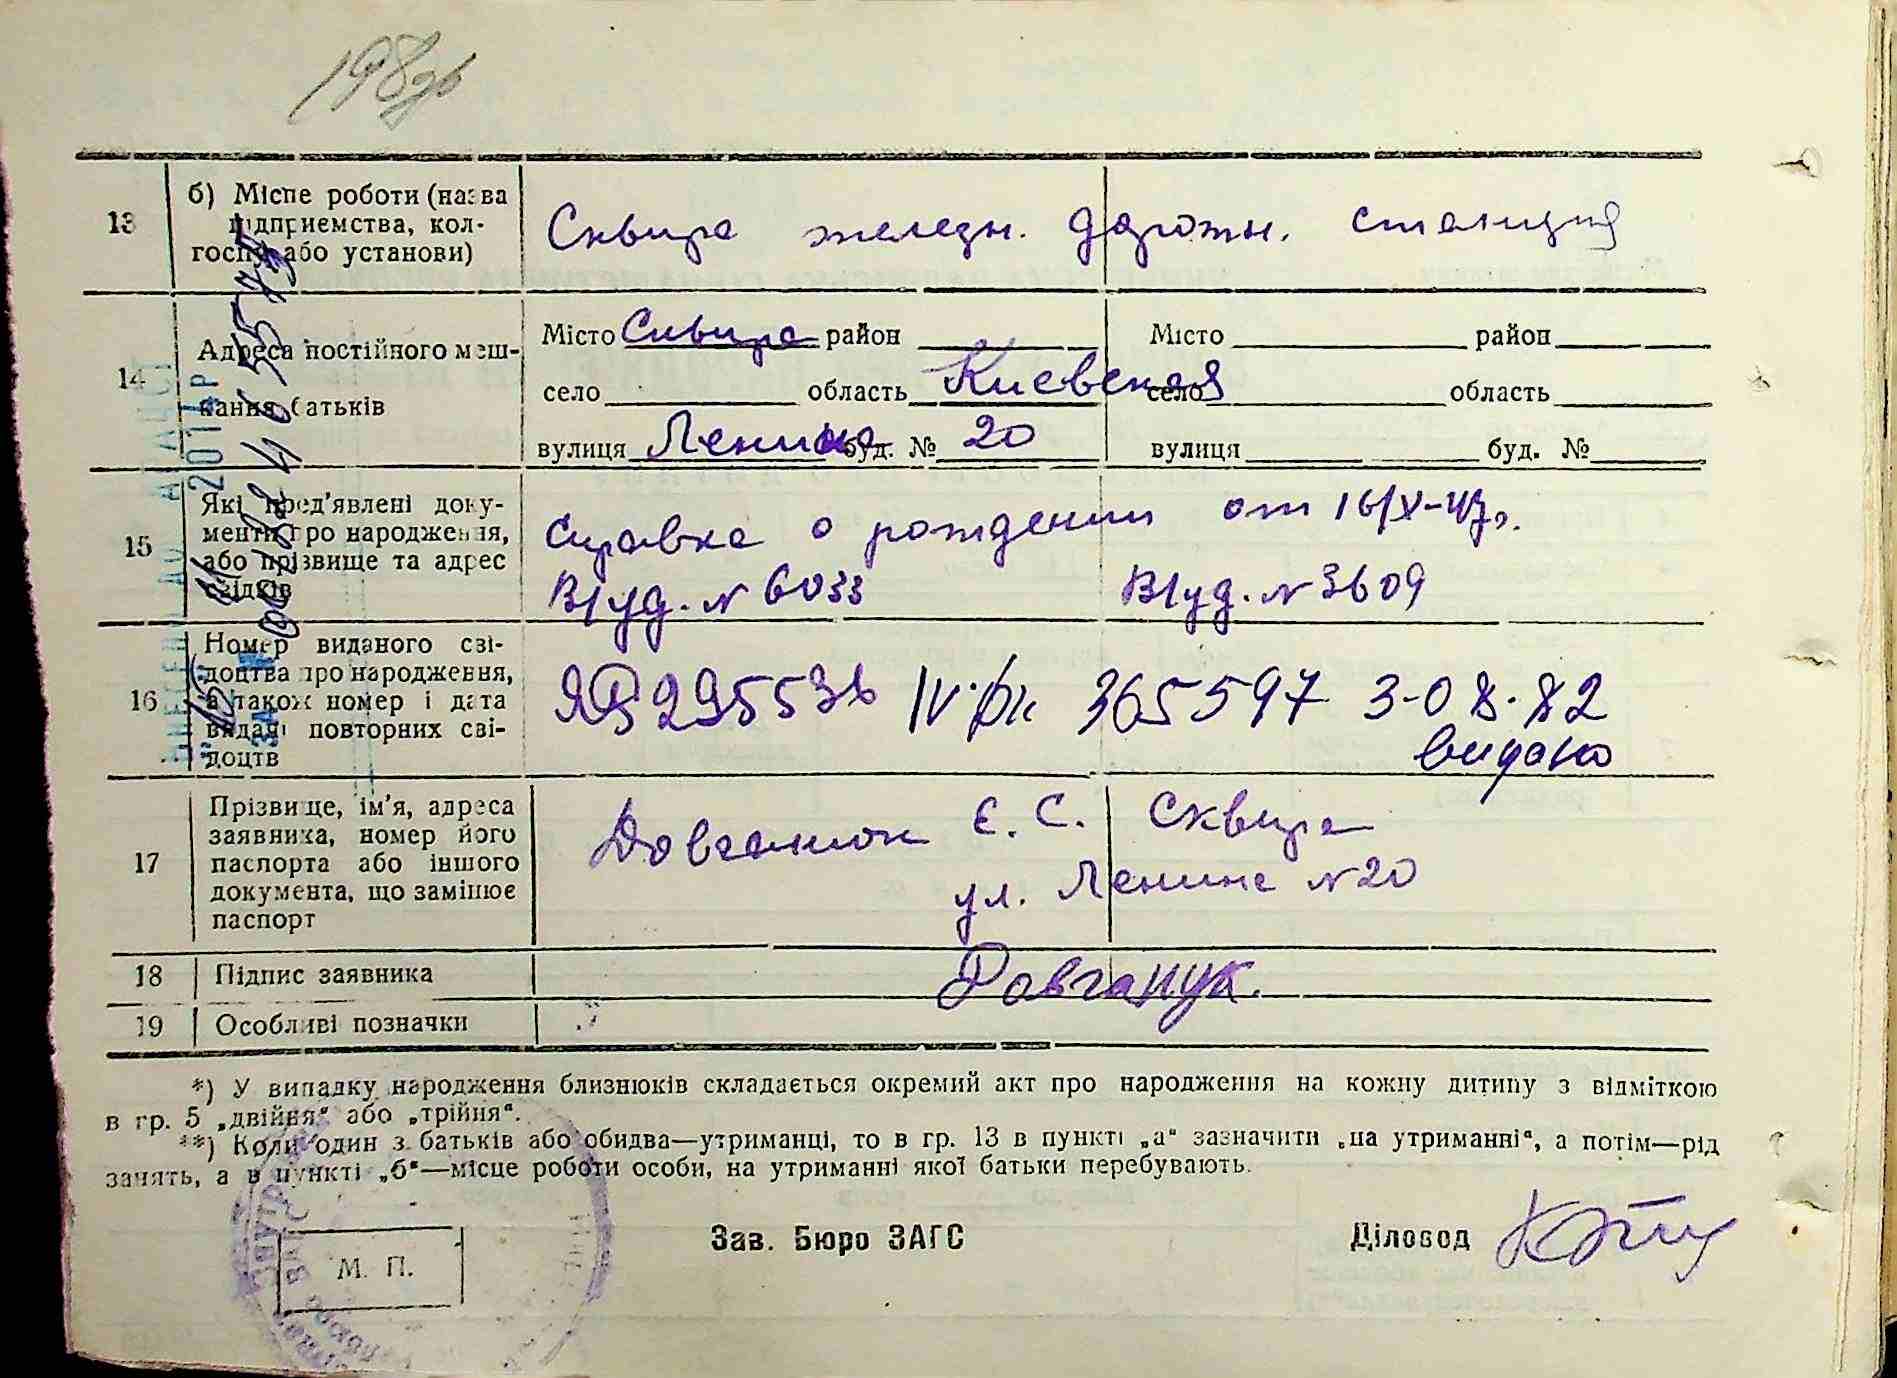 198зв
13
б) Місце роботи (назва підприємства, колгоспу або установи)
Сквира железн. дорожн. станция
14
Адреса постійного мешкання батьків
Місто Сквира район
село область Киевская
вулиця Ленина буд. № 20
Місто район
село область
вулиця буд. №
15
Які пред'явлені документи про народження, або прізвище та адрес свідків
Справка о рождении от 16/X-47г.
В/уд. № 6033 В/уд. № 3609
16
Номер виданого свідоцтва про народження, а також номер і дата видачі повторних свідоцтв
295536 IV-фк 365597 3-08.82
видано
17
Прізвище, ім'я, адреса заявника, номер його паспорта або іншого документа, що замінює паспорт
Довганюк Є. С. Сквира
ул. Ленина №20
18
Підпис заявника
Довганук.
19
Особливі позначки
*) У випадку народження близнюків складається окремий акт про народження на кожну дитину з відміткою
в гр. 5 „двійня“ або „трійня“.
**) Коли один з батьків або обидва—утриманці, то в гр. 13 в пункті „а“ зазначити „на утриманні“, а потім—рід
занять, а в пункті „б“—місце роботи особи, на утриманні якої батьки перебувають.
Зав. Бюро ЗАГС
Діловод
М. П.